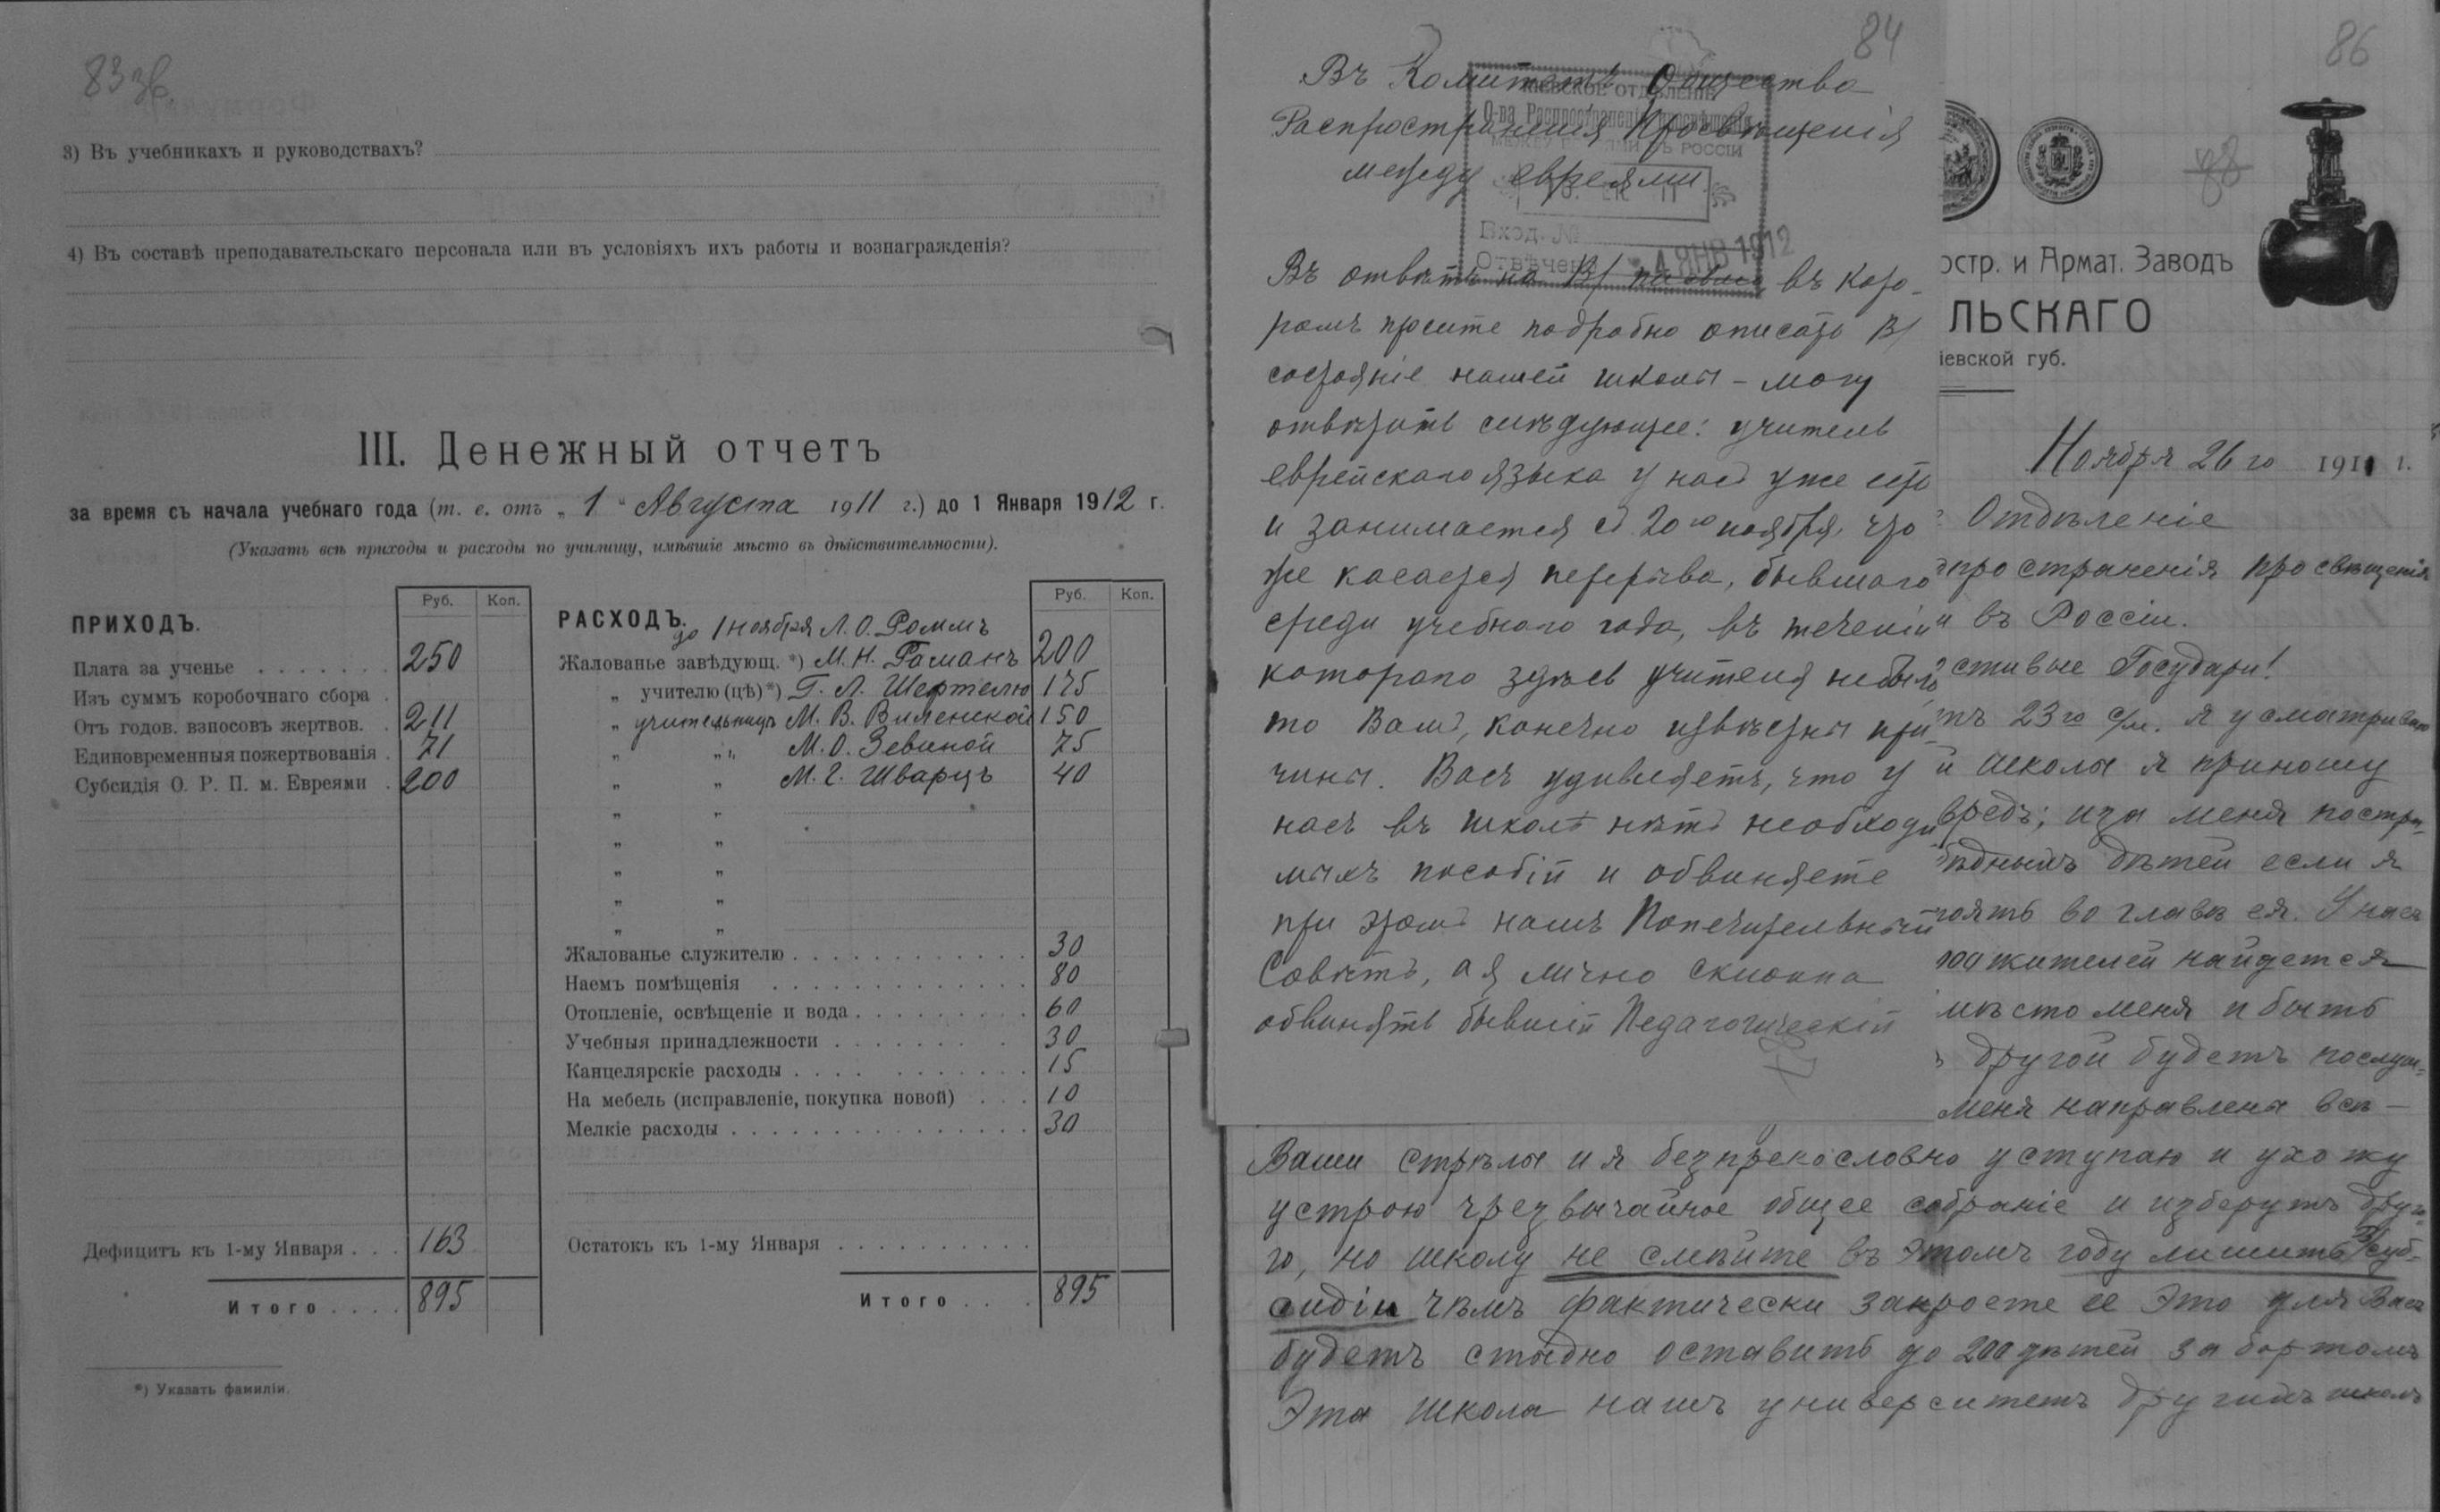 83 об.
3) Въ учебникахъ и руководствахъ?
4) Въ составѣ преподавательскаго персонала или въ условіяхъ ихъ работы и вознагражденія?
III. Денежный отчетъ
за время съ начала учебнаго года (т. е. отъ „ 1 “ Августа 1911 г.) до 1 Января 1912 г.
(Указать всѣ приходы и расходы по училищу, имѣвшіе мѣсто въ дѣйствительности).
ПРИХОДЪ. Руб. Коп.
Плата за ученье 250
Изъ суммъ коробочнаго сбора
Отъ годов. взносовъ жертвов. 211
Единовременныя пожертвованія 71
Субсидія О. Р. П. м. Евреями 200
Дефицитъ къ 1-му Января 163
Итого 895
РАСХОДЪ. Руб. Коп.
до 1 ноября Л. О. Роммъ
Жалованье завѣдующ. *) М. Н. Гаманъ 200
„ учителю (цѣ) *) Г. Л. Шефтелю 175
„ учительницѣ М. В. Виленской 150
„ „ М. О. Зевиной 75
„ „ М. Г. Шварцъ 40
„ „
„ „
„ „
„ „
„ „
Жалованье служителю 30
Наемъ помѣщенія 80
Отопленіе, освѣщеніе и вода 60
Учебныя принадлежности 30
Канцелярскіе расходы 15
На мебель (исправленіе, покупка новой) 10
Мелкіе расходы 30
Остатокъ къ 1-му Января
Итого 895
*) Указать фамиліи.
84
Въ Комитетъ Общества
Распространенія Просвѣщенія
между евреями
КІЕВСКОЕ ОТДѢЛЕНІЕ
О-ва Распространенія просвѣщенія
МЕЖДУ ЕВРЕЯМИ ВЪ РОССІИ
Вход. №
Отвѣчено
4 ЯНВ 1912
Въ отвѣтъ на В/ въ кото-
ромъ просите подробно описать В/
состояніе нашей школы – могу
отвѣтить слѣдующее: учитель
еврейскаго языка у насъ уже есть
и занимается съ 20го ноября, что
же касается перерыва, бывшаго
среди учебнаго года, въ теченіи
котораго здѣсь учителя не было
то Вамъ, конечно извѣстны при-
чины. Васъ удивляетъ, что у
насъ въ школѣ нѣтъ необходи
мыхъ пособій и обвиняете
при этомъ нашъ Попечительный
Совѣтъ, а я лично склонна
обвинять бывшій Педагогическій
86
остр. и Армат. Заводъ
ЛЬСКАГО
іевской губ.
Ноября 26го 1911 г.
Отдѣленіе
пространенія просвѣщенія
и въ Россіи.
стивые Государи!
тъ 23го с/м. я усматриваю
й школы я приношу
вредъ; изъ меня постра-
бѣднымъ дѣтей если я
тоять во главѣ ея. У насъ
жителей найдется
мѣсто меня и быть
другой будетъ послуш-
меня направлены всѣ –
Ваши стрѣлы и я безпрекословно уступаю и ухожу
устрою чрезвычайное общее собраніе и изберутъ друго-
го, но школу не смѣйте въ этомъ году лишить суб-
сидіи чѣмъ фактически закроете ее Это для Васъ
будетъ стыдно оставить до 200 дѣтей за бортомъ
Эта школа нашъ университетъ другихъ школъ